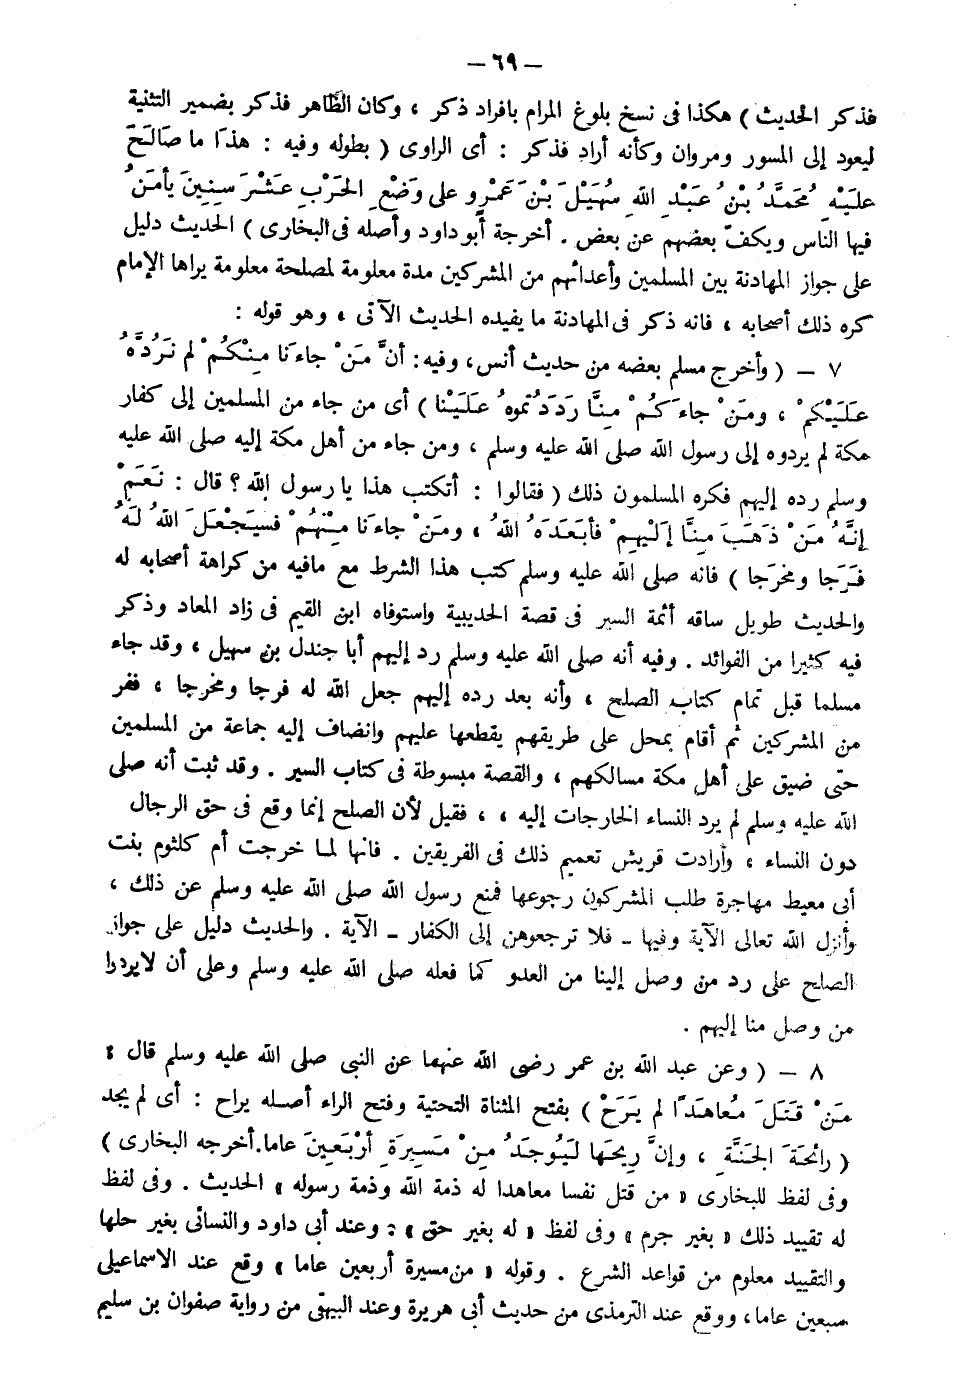 — ٦٩ —
فذكر الحديث ) هكذا فى نسخ بلوغ المرام بافراد ذكر ، وكان الظاهر فذكر بضمير التثنية
ليعود إلى المسور ومروان وكأنه أراد فذكر : أى الراوى ( بطوله وفيه : هذَا ما صَالَحَ
عليْهِ مُحَمَّدُ بْنُ عبْدِ اللهِ سُهَيْلَ بْنَ عَمْرٍو على وَضْعِ الحَرْبِ عَشْرَ سِنِينَ يأمَنُ
فيها الناس ويكفّ بعضهم عن بعض . أخرجة أبو داود وأصله فى البخارى ) الحديث دليل
على جواز المهادنة بين المسلمين وأعدائهم من المشركين مدة معلومة لمصلحة معلومة يراها الإمام
كره ذلك أصحابه ، فانه ذكر فى المهادنة ما يفيده الحديث الآتى ، وهو قوله :
٧ — ( وأخرج مسلم بعضه من حديث أنس، وفيه: أنَّ مَنْ جاءَنا مِنْكُمْ لم نَرُدَّهُ
عَلَيْكمْ ، ومَنْ جاءَكُمْ مِنَّا رَدَدْتُموهُ عَلَيْنا ) أى من جاء من المسلمين إلى كفار
مكة لم يردوه إلى رسول الله صلى الله عليه وسلم ، ومن جاء من أهل مكة إليه صلى الله عليه
وسلم رده إليهم فكره المسلمون ذلك ( فقالوا : أتكتب هذا يا رسول الله ؟ قال : نَعَمْ
إنَّهُ مَنْ ذَهَبَ مِنَّا إلَيْهِمْ فأبعَدَهُ اللهُ ، ومَنْ جاءَنا مِنْهُمْ فسيَجْعَلَ اللهُ لَهُ
فَرَجا ومخرَجا ) فانه صلى الله عليه وسلم كتب هذا الشرط مع مافيه من كراهة أصحابه له
والحديث طويل ساقه أئمة السير فى قصة الحديبية واستوفاه ابن القيم فى زاد المعاد وذكر
فيه كثيرا من الفوائد . وفيه أنه صلى الله عليه وسلم رد إليهم أبا جندل بن سهيل ، وقد جاء
مسلما قبل تمام كتاب الصلح ، وأنه بعد رده إليهم جعل الله له فرجا ومخرجا ، ففر
من المشركين ثم أقام بمحل على طريقهم يقطعها عليهم وانضاف إليه جماعة من المسلمين
حتى ضيق على أهل مكة مسالكهم ، والقصة مبسوطة فى كتاب السير . وقد ثبت أنه صلى
الله عليه وسلم لم يرد النساء الخارجات إليه ، ، فقيل لأن الصلح إنما وقع فى حق الرجال
دون النساء ، وأرادت قريش تعميم ذلك فى الفريقين . فانها لما خرجت أم كلثوم بنت
أبى معيط مهاجرة طلب المشركون رجوعها فمنع رسول الله صلى الله عليه وسلم عن ذلك ،
وأنزل الله تعالى الآية وفيها - فلا ترجعوهن إلى الكفار - الآية . والحديث دليل على جواز
الصلح على رد من وصل إلينا من العدو كما فعله صلى الله عليه وسلم وعلى أن لايردوا
من وصل منا إليهم .
٨ — ( وعن عبد الله بن عمر رضى الله عنهما عن النبى صلى الله عليه وسلم قال :
مَنْ قَتَلَ مُعاهَدًا لم يَرَحْ ) بفتح المثناة التحتية وفتح الراء أصله يراح : أى لم يجد
( رائحَةَ الجَنَّةِ ، وإنَّ رِيحَها لَيُوجَدُ مِنْ مَسِيرَةِ أرْبَعِينَ عاما. أخرجه البخارى )
وفى لفظ للبخارى « من قتل نفسا معاهدا له ذمة الله وذمة رسوله » الحديث . وفى لفظ
له تقييد ذلك « بغير جرم » وفى لفظ « له بغير حق » : وعند أبى داود والنسائى بغير حلها
والتقييد معلوم من قواعد الشرع . وقوله « من مسيرة أربعين عاما » وقع عند الاسماعيلى
سبعين عاما، ووقع عند الترمذى من حديث أبى هريرة وعند البيهقى من رواية صفوان بن سليم